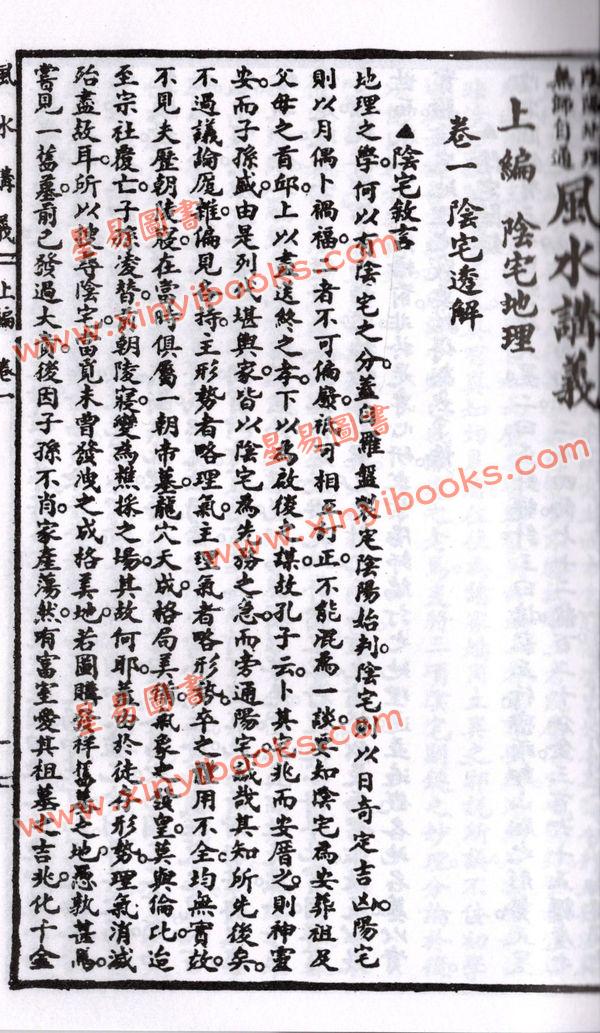 陰陽地理
無師自通
風水講義
上編 陰宅地理
卷一 陰宅透解
▲陰宅敘言
地理之學何以有陰宅之分蓋自羅盤製定陰陽始判陰宅則以日奇定吉凶陽宅
則以月偶卜禍福二者不可偏廢祇可相互訂正不能混為一談要知陰宅為安葬祖足
父母之首邱上以盡送終之孝下以為啟後之謀故孔子云卜其宅兆而安厝之則神靈
安而子孫盛由是列代堪輿家皆以陰宅為先務之急而旁通陽宅誠哉其知所先後矣
不過議論厖雜偏見各持主形勢者略理氣主理氣者略形勢卒之體用不全均無實效
不見夫歷朝陵寢在當時俱屬一朝帝墓龍穴天成格局美備氣象之
皇莫與倫比迨
至宗社覆亡子孫凌替前朝陵寢變為樵採之場其故何耶蓋因於徒存形勢理氣消滅
殆盡故耳所以
尋陰宅當覓未曾發洩之成格美地若圖購發祥舊墓之地愚孰甚焉
嘗見一舊墓前已發過大富後因子孫不肖家產蕩然有富室愛其祖墓之吉兆化千金
風水講義 上編 卷一
一
星易圖書
www.xinyibooks.com
星易圖書
www.xinyibooks.com
星易圖書
www.xinyibooks.com